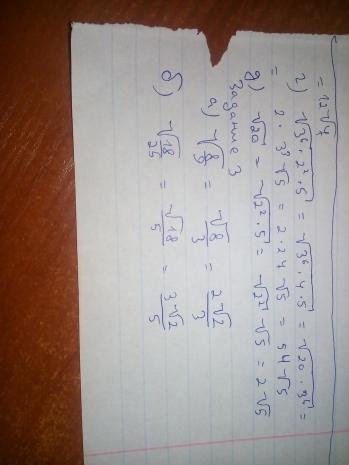 = 12√4
г) √3⁶ · 2² · 5 = √3⁶ · 4 · 5 = √20 · 3⁶ =
= 2 · 3³ √5 = 2 · 27 √5 = 54 √5
д) √20 = √2² · 5 = √2² √5 = 2 √5
Задание 3
а) √8/9 = √8/3 = 2√2/3
б) √18/25 = √18/5 = 3√2/5